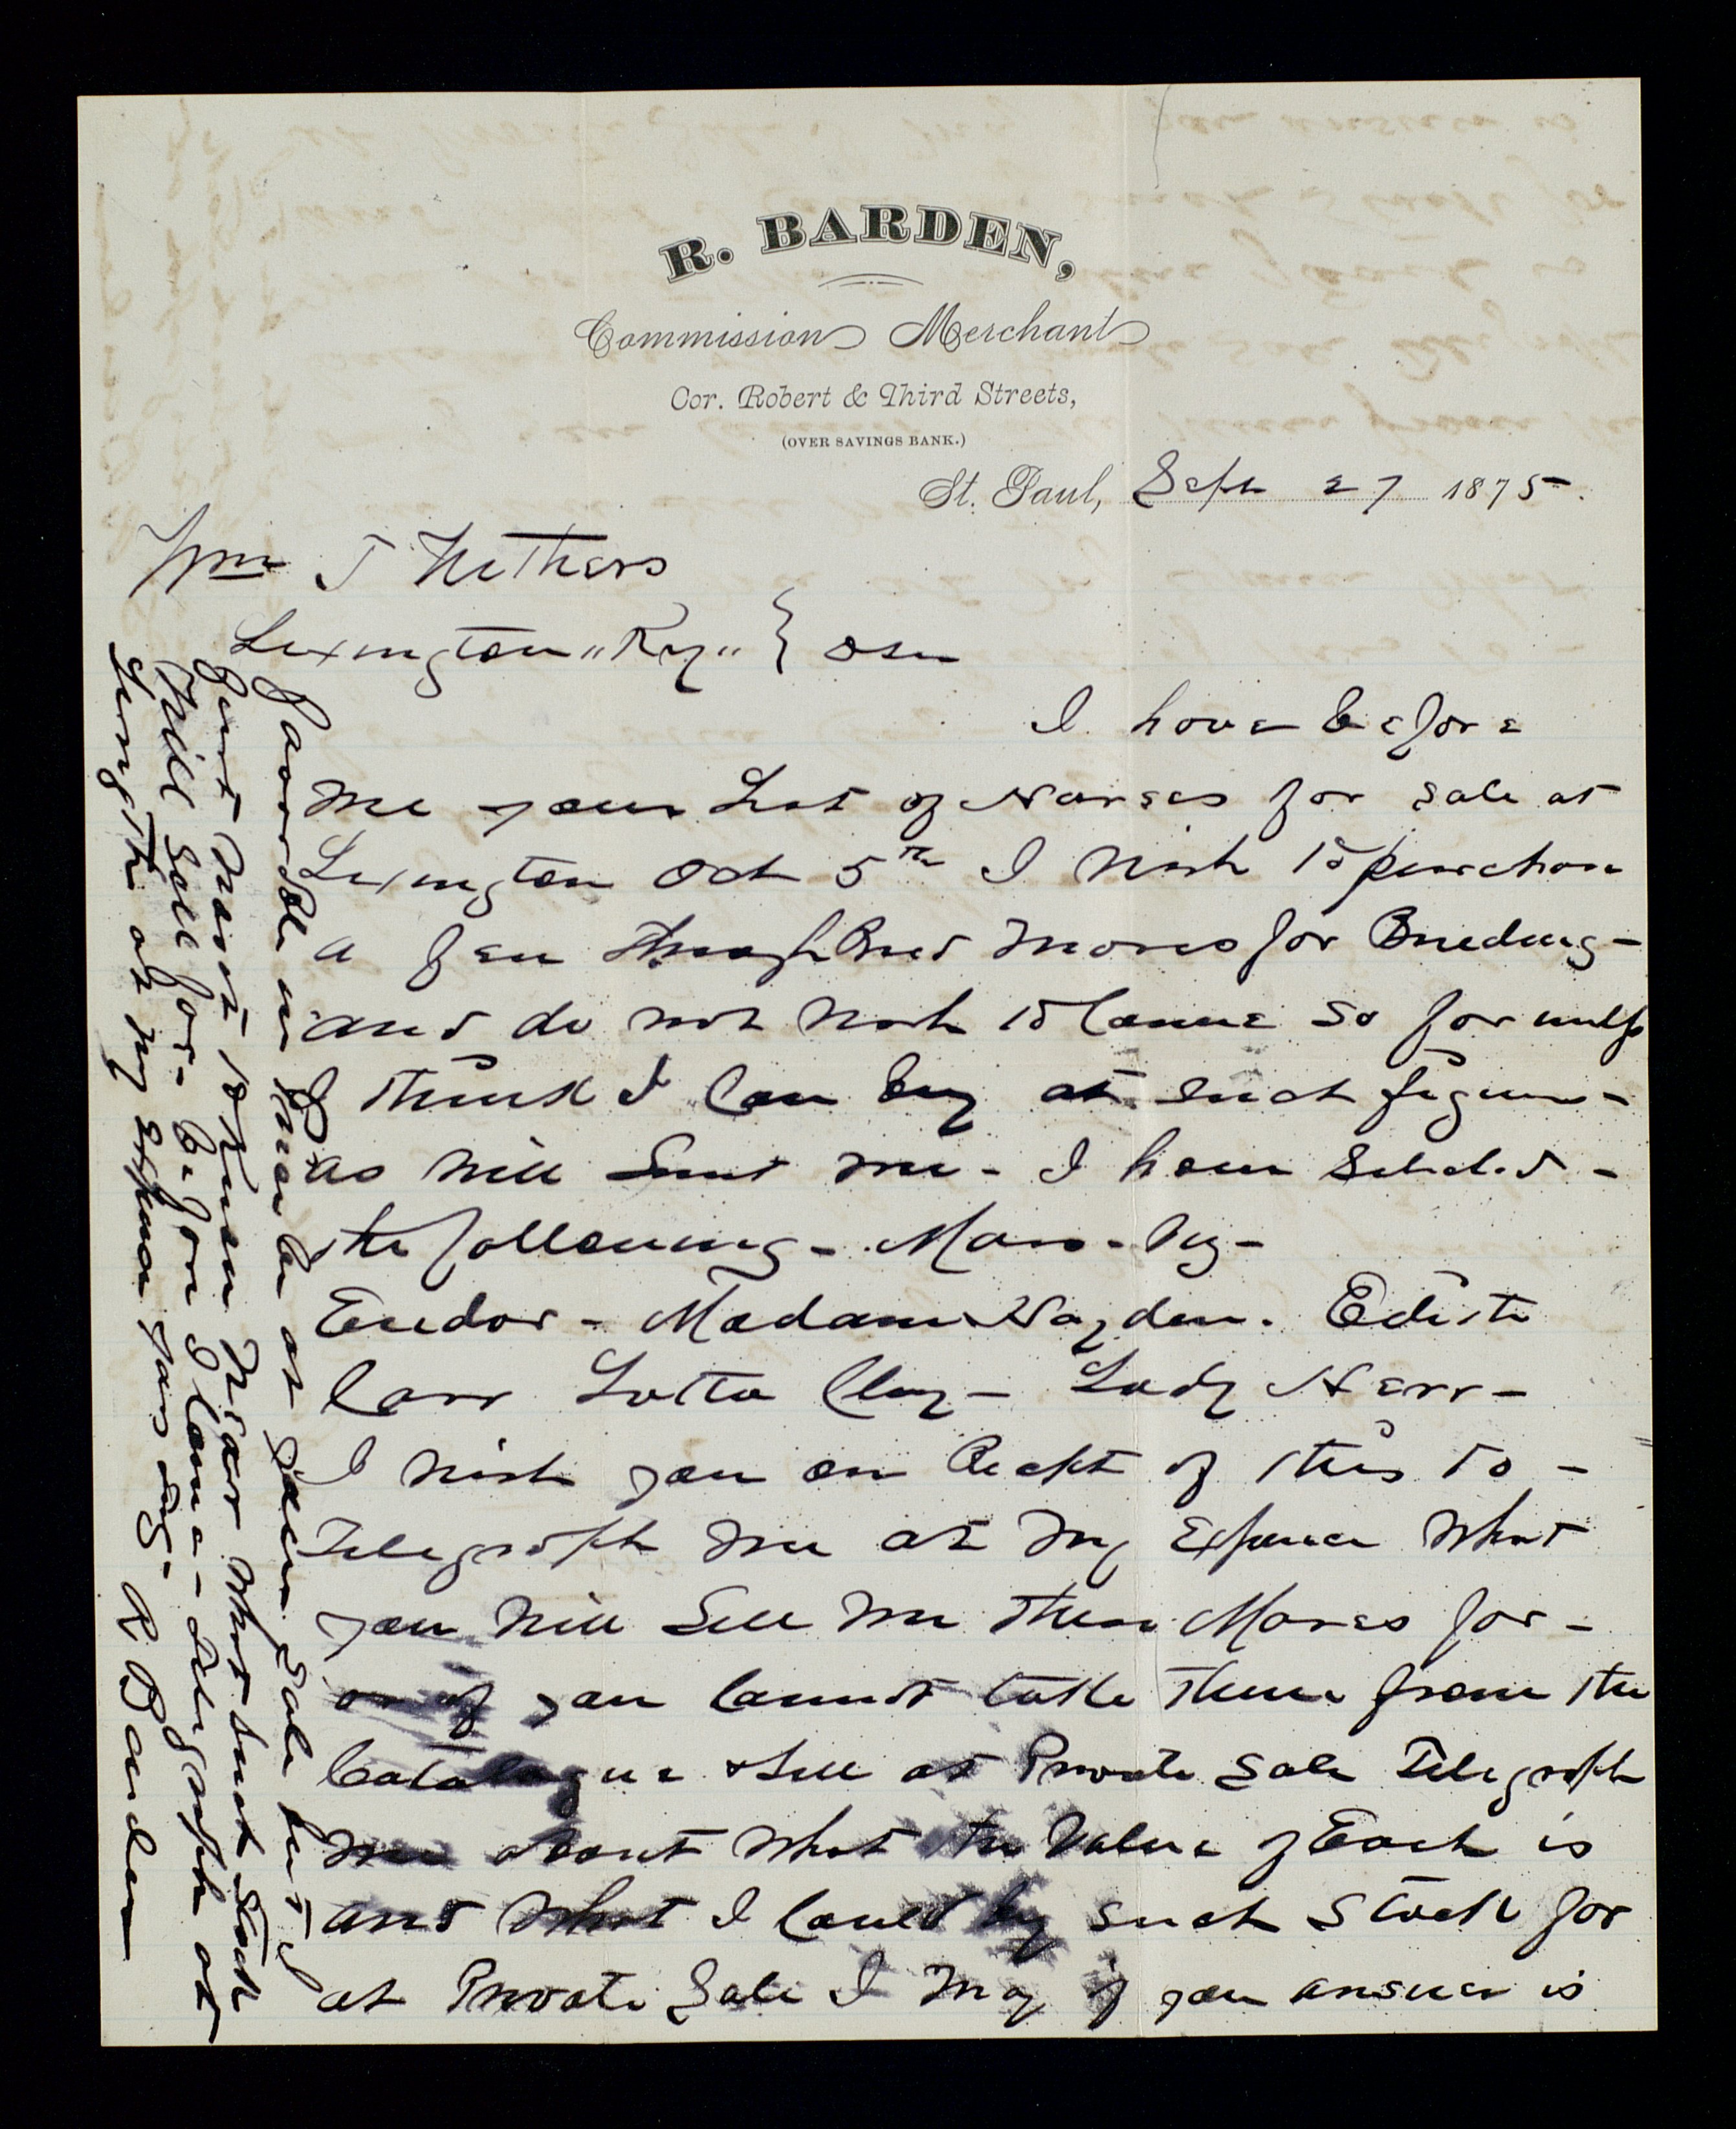 R. BARDEN,
Commission Merchant
Cor. Robert & Third Streets,
(OVER SAVINGS BANK.)
St. Paul, Sept 27 1875.
Wm T Withers
Lexington "Ky" } Dsir
I have before
me your List of Horses for sale at
Lexington Oct 5th I Wish to purchase
a few Thoughbred Mares for Breeding-
and do not Wish to Come so far unless
I Think I Can buy at such figures-
as Will Suit me- I have Selected-
the following- Mares- Viz-
Eudor- Madam Hayden. Edith
Carr Lotta Clay- Lady Herr-
I Wish you on Recpt of this to-
Telegraph me at My Expence What
you Will Sell me These Mares for-
or if you Cannot take Them from the
Catalogue & Sell at Private Sale Telegraph
me about What the Value of Each is
and What I Could by such Stock for
at Private Sale I May if you answer is
favorable in be at your Sale but I
just Want to Know Near What such Stock
Will Sell for- before I Come- Telegraph at
Length at my expence yours &c- R Barden